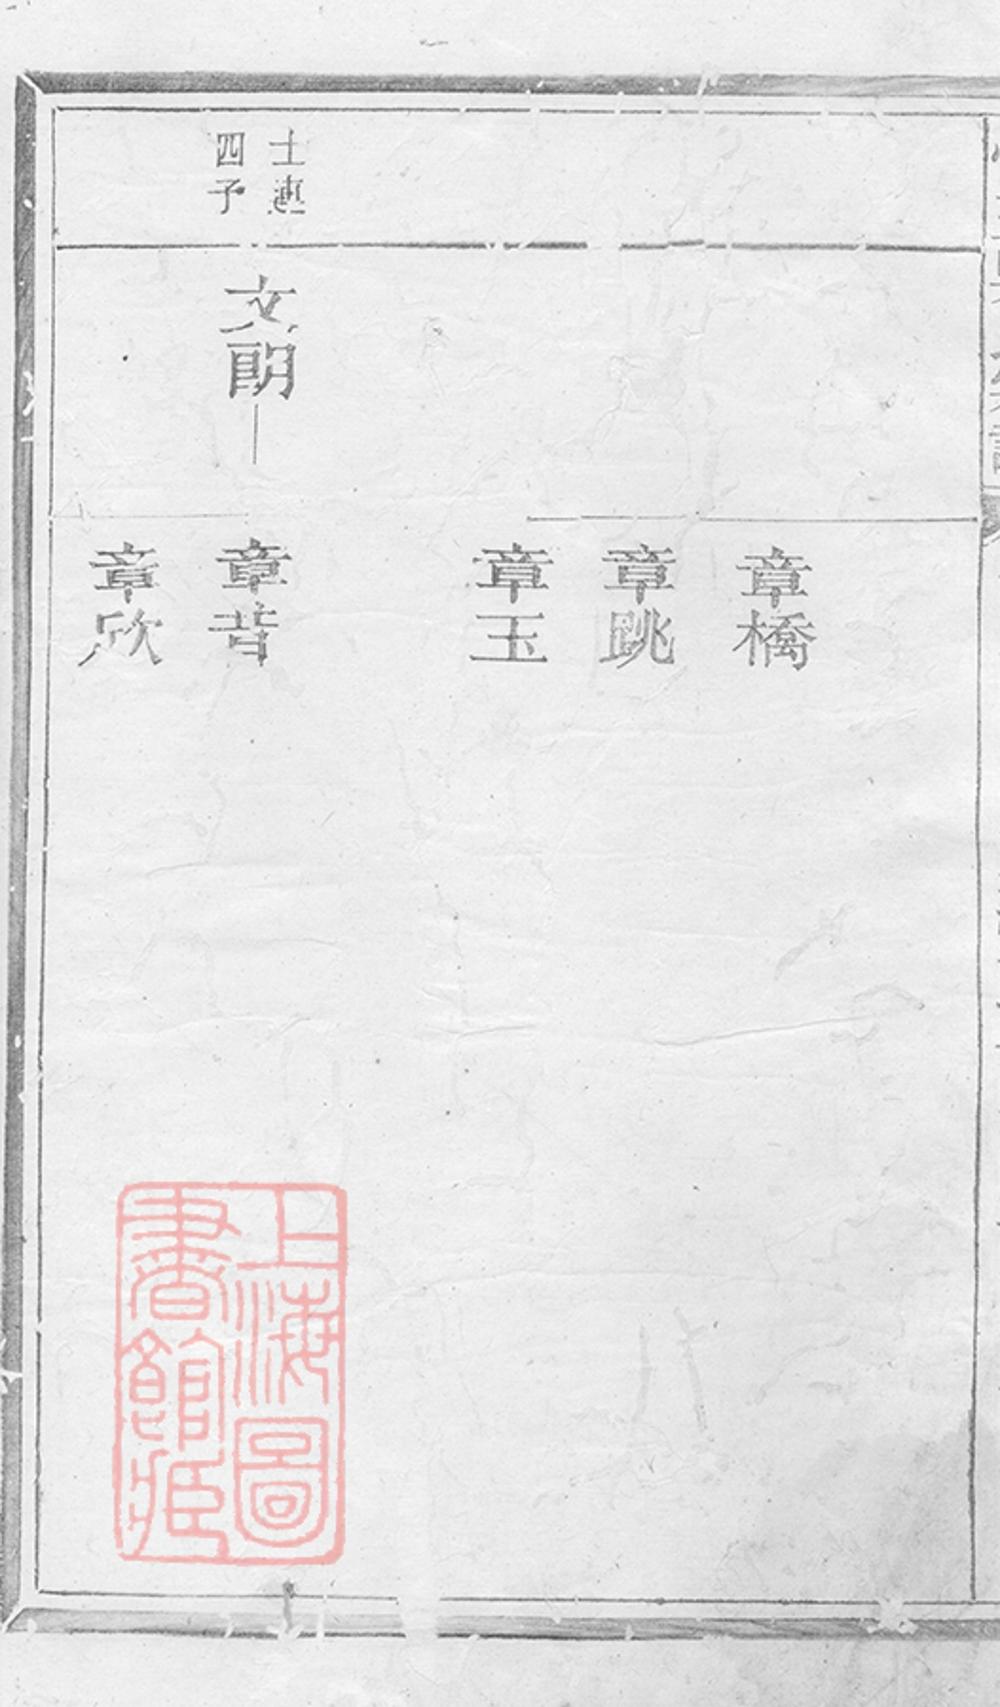 章橋
章跳
章玉
士連
四子
文朗
章昔
章欣
上海圖
書館藏